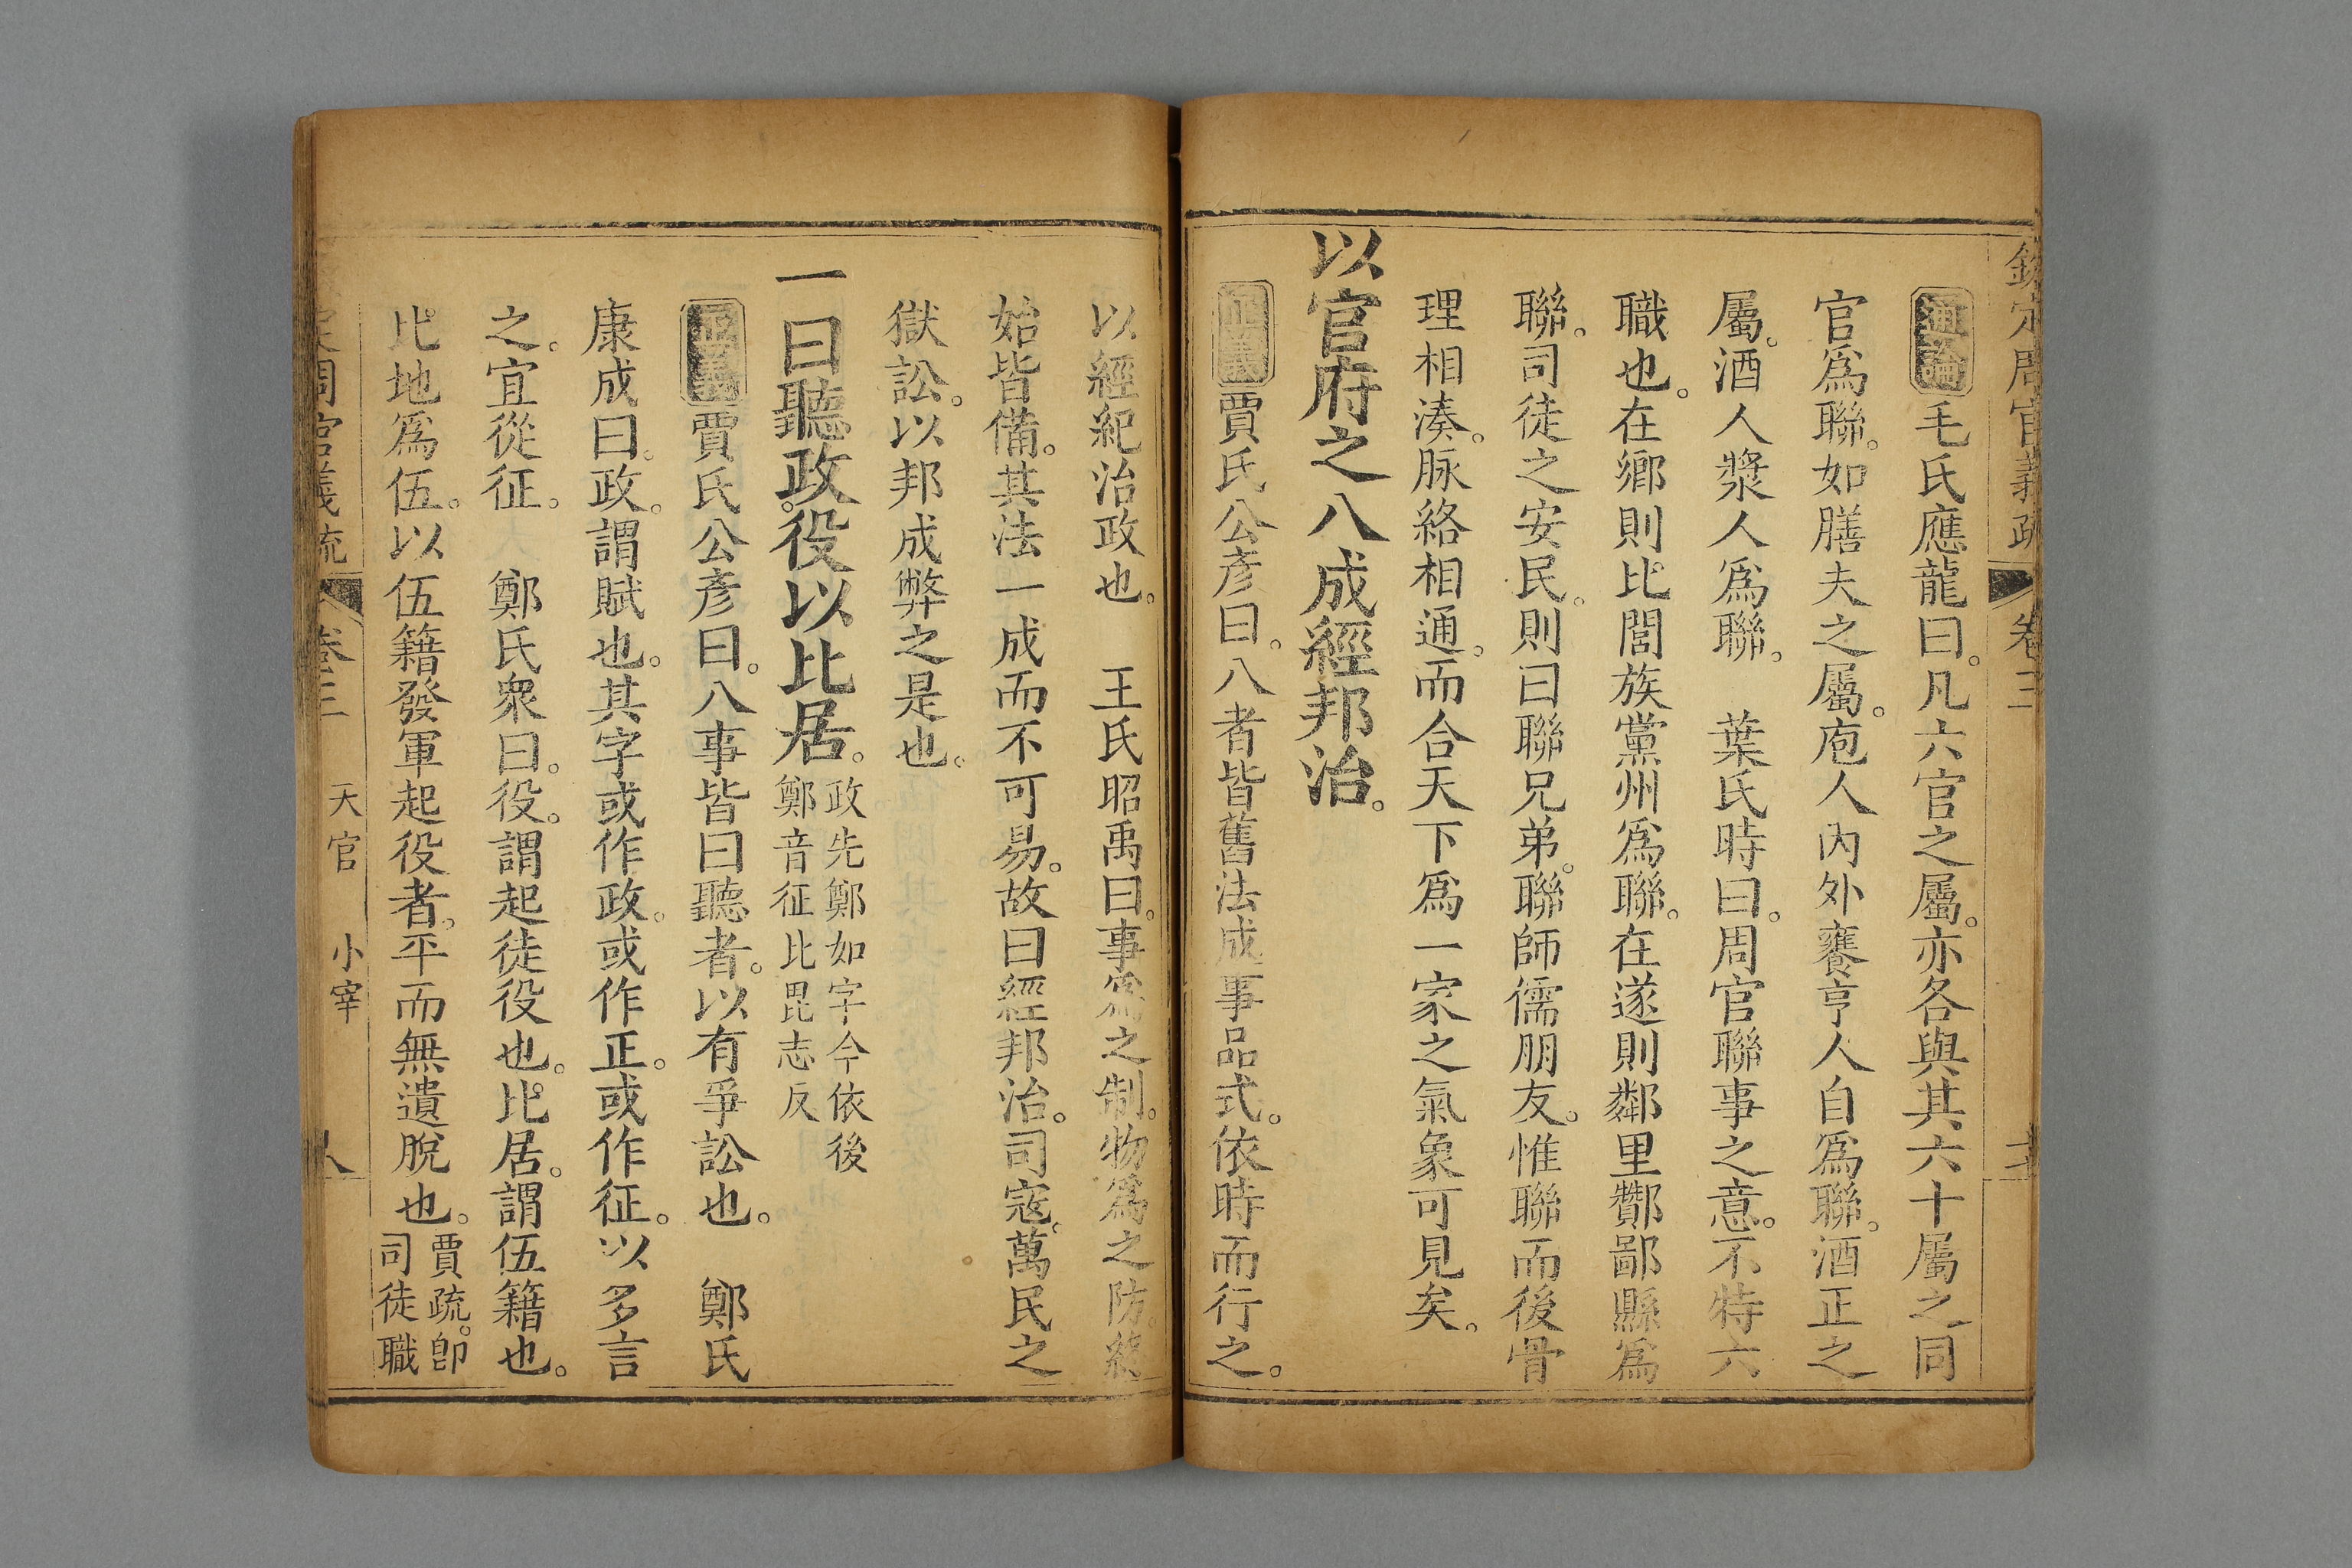 欽定周官義疏 卷三
通論毛氏應龍曰。凡六官之屬。亦各與其六十屬之同
官爲聯。如膳夫之屬。庖人內外饔亨人自爲聯。酒正之
屬。酒人漿人爲聯。 葉氏時曰。周官聯事之意。不特六
職也。在鄉則比閭族黨州爲聯。在遂則鄰里酇鄙縣爲
聯。司徒之安民。則曰聯兄弟。聯師儒朋友。惟聯而後骨
理相湊。脉絡相通。而合天下爲一家之氣象可見矣。
以官府之八成經邦治。
正義賈氏公彦曰。八者皆舊法成事品式。依時而行之。
以經紀治政也。 王氏昭禹曰。事爲之制。物爲之防。終
始皆備。其法一成而不可易。故曰經邦治。司寇。萬民之
獄訟。以邦成弊之是也。
一曰聽政役以比居。政先鄭如字今依後
鄭音征比毘志反
正義賈氏公彦曰。八事皆曰聽者。以有爭訟也。 鄭氏
康成曰。政。謂賦也。其字或作政。或作正。或作征。以多言
之。宜從征。 鄭氏衆曰。役。謂起徒役也。比居。謂伍籍也。
比地爲伍。以伍籍發軍起役者。平而無遺脫也。賈疏。卽
司徒職
定周官義疏 卷三 天官 小宰